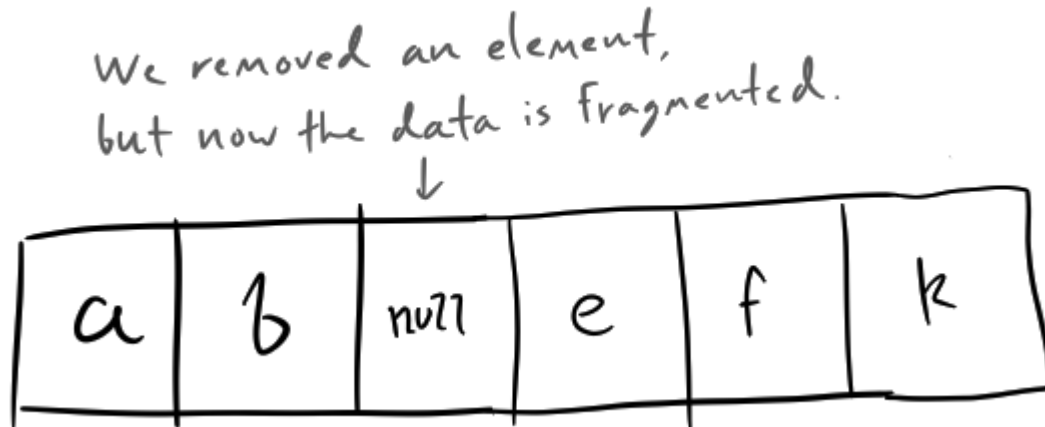 We removed an element,
but now the data is fragmented.
a b null e f k